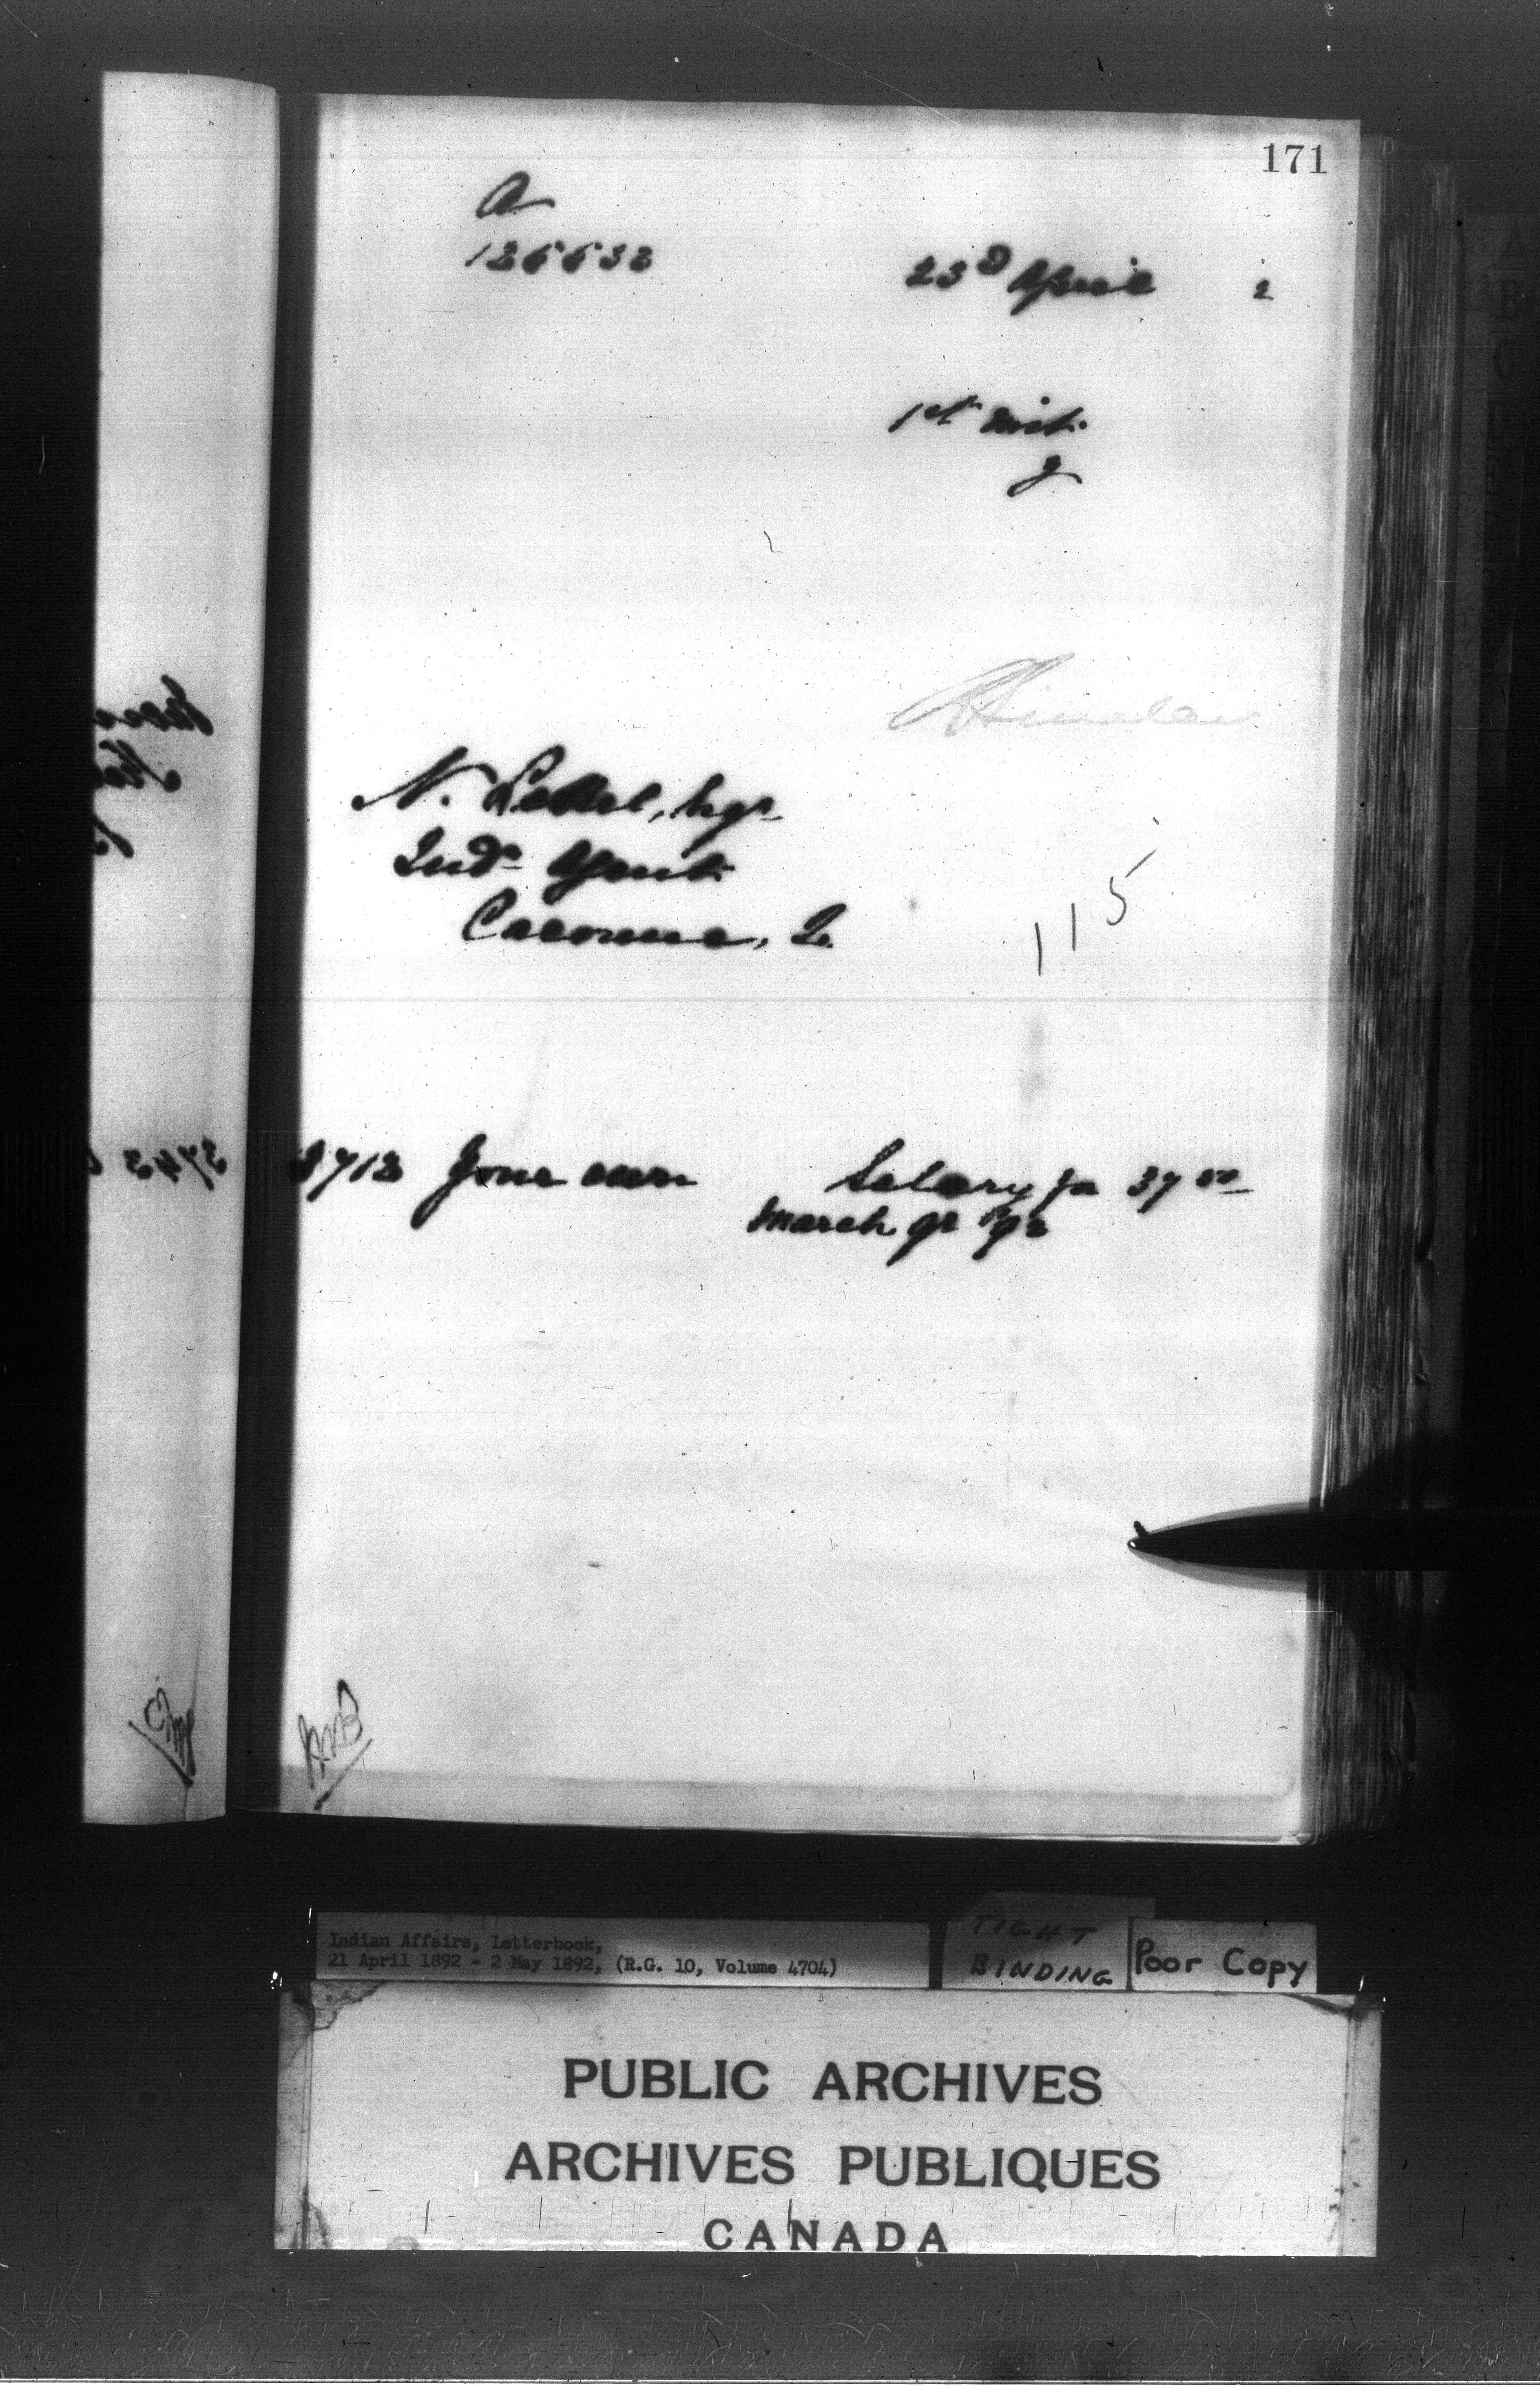 171
A
126632
23d April 2
1st inst.
N. LeBel, Esqr
Indn Agent
Cacouna, Q.
115
3712 Your own Salary for 37 50
March qr '92
Indian Affairs, Letterbook,
21 April 1892 - 2 May 1892, (R.G. 10, Volume 4704)
TIGHT
BINDING
Poor Copy
PUBLIC ARCHIVES
ARCHIVES PUBLIQUES
CANADA